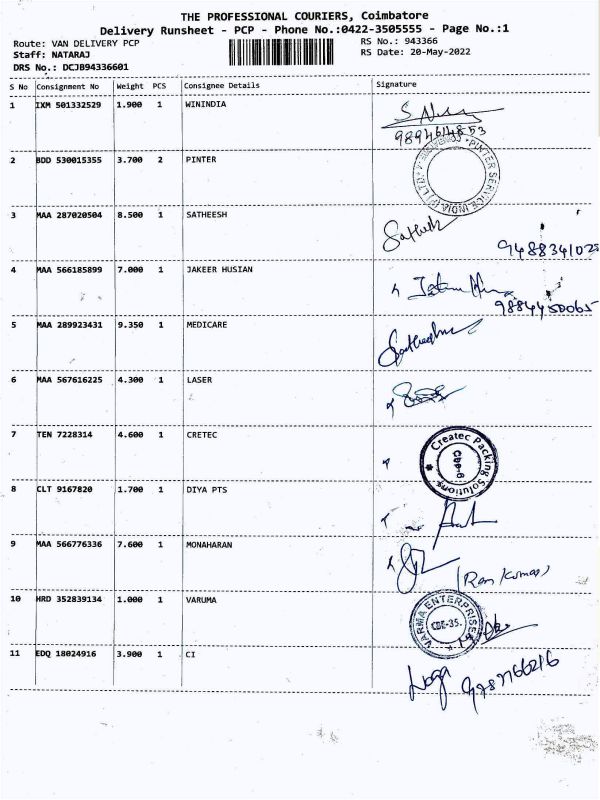 THE PROFESSIONAL COURIERS, Coimbatore
Delivery Runsheet - PCP - Phone No.:0422-3505555 - Page No.:1
Route: VAN DELIVERY PCP RS No.: 943366
Staff: NATARAJ RS Date: 20-May-2022
DRS No.: DCJB94336601
S No Consignment No Weight PCS Consignee Details Signature
1 IXM 501332529 1.900 1 WININDIA
9894614853
2 BDD 530015355 3.700 2 PINTER
PINTER SERVICE INDIA (P) LTD.
3 MAA 287020504 8.500 1 SATHEESH Sathish
9488341025
4 MAA 566185899 7.000 1 JAKEER HUSIAN
9884450065
5 MAA 289923431 9.350 1 MEDICARE
6 MAA 567616225 4.300 1 LASER
7 TEN 7228314 4.600 1 CRETEC
Createc Packing Solutions
CBE-6
8 CLT 9167820 1.700 1 DIYA PTS
9 MAA 566776336 7.600 1 MONAHARAN
(Ram Kumar)
10 HRD 352839134 1.000 1 VARUMA
VARMA ENTERPRISES
CBE-35.
11 EDQ 18024916 3.900 1 CI
9787766216